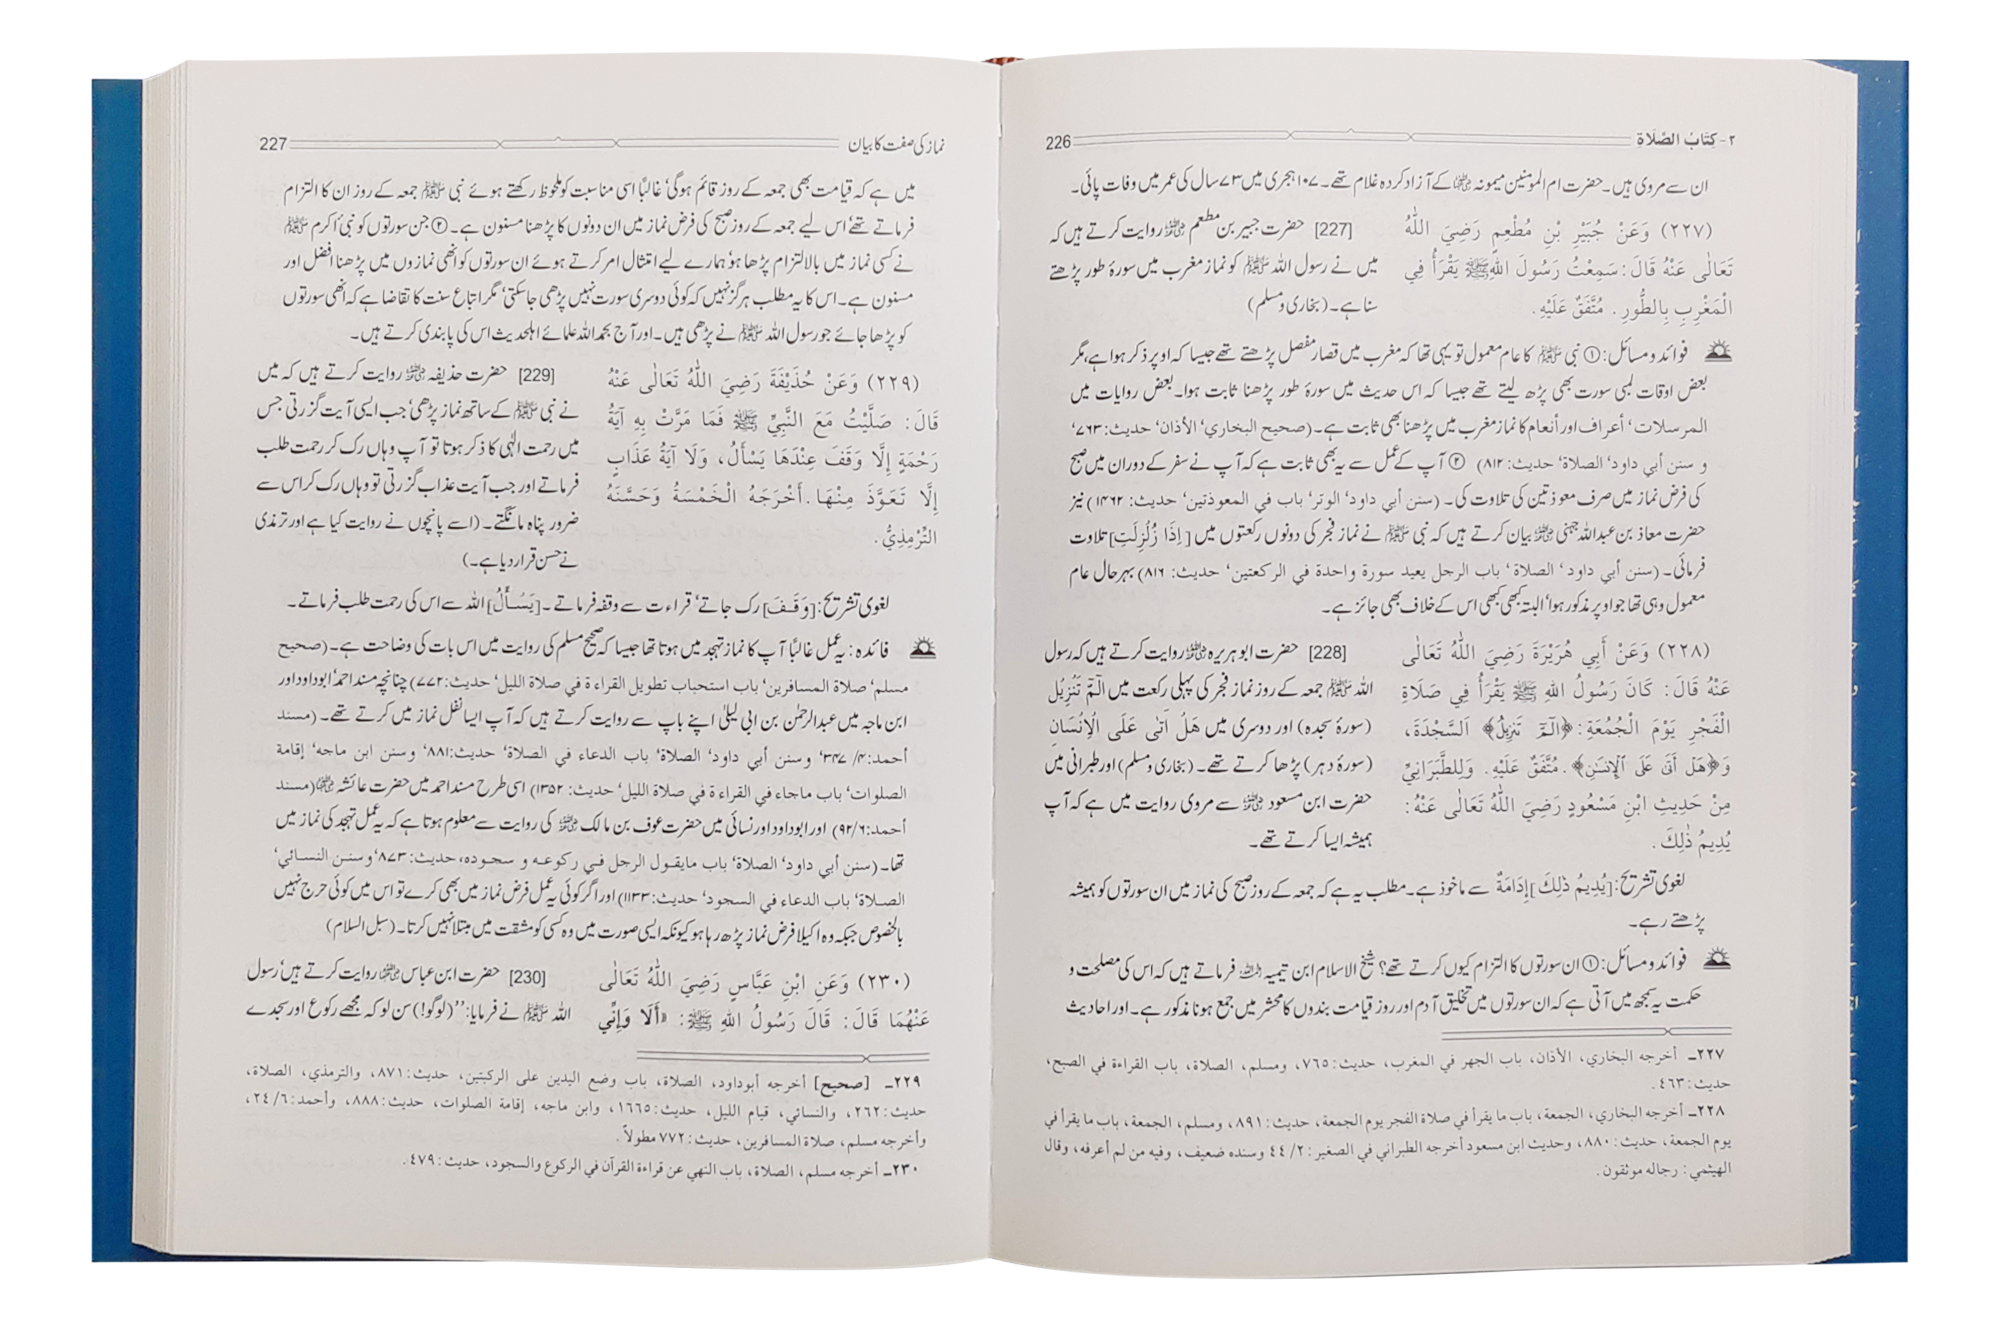 ۲- كِتَابُ الصَّلَاةِ 226
ان سے مروی ہیں۔ حضرت ام المؤمنین میمونہ رضی اللہ عنہا کے آزاد کردہ غلام تھے۔ ۱۰۷ ہجری میں ۷۳ سال کی عمر میں وفات پائی۔
(٢٢٧) وَعَنْ جُبَيْرِ بْنِ مُطْعِمٍ رَضِيَ اللّٰهُ
تَعَالٰى عَنْهُ قَالَ: سَمِعْتُ رَسُولَ اللهِ ﷺ يَقْرَأُ فِي
الْمَغْرِبِ بِالطُّورِ. مُتَّفَقٌ عَلَيْهِ.
[227] حضرت جبیر بن مطعم رضی اللہ عنہ روایت کرتے ہیں کہ
میں نے رسول اللہ ﷺ کو نماز مغرب میں سورۂ طور پڑھتے
سنا ہے۔ (بخاری و مسلم)
فوائد و مسائل: ① نبی ﷺ کا عام معمول تو یہی تھا کہ مغرب میں قصار مفصل پڑھتے تھے جیسا کہ اوپر ذکر ہوا ہے، مگر
بعض اوقات لمبی سورت بھی پڑھ لیتے تھے جیسا کہ اس حدیث میں سورۂ طور پڑھنا ثابت ہوا۔ بعض روایات میں
المرسلات‘ أعراف اور أنعام کا نماز مغرب میں پڑھنا بھی ثابت ہے۔ (صحیح البخاري‘ الأذان‘ حدیث: ۷۶۳‘
و سنن أبي داود‘ الصلاة‘ حدیث: ۸۱۲) ② آپ کے عمل سے یہ بھی ثابت ہے کہ آپ نے سفر کے دوران میں صبح
کی فرض نماز میں صرف معوذتین کی تلاوت کی۔ (سنن أبي داود‘ الوتر‘ باب في المعوذتین‘ حدیث: ۱۴۶۲) نیز
حضرت معاذ بن عبداللہ جہنی رضی اللہ عنہ بیان کرتے ہیں کہ نبی ﷺ نے نماز فجر کی دونوں رکعتوں میں [إِذَا زُلْزِلَتِ] تلاوت
فرمائی۔ (سنن أبي داود‘ الصلاة‘ باب الرجل یعید سورة واحدة في الرکعتین‘ حدیث: ۸۱۶) بہرحال عام
معمول وہی تھا جو اوپر مذکور ہوا‘ البتہ کبھی کبھی اس کے خلاف بھی جائز ہے۔
(٢٢٨) وَعَنْ أَبِي هُرَيْرَةَ رَضِيَ اللّٰهُ تَعَالٰى
عَنْهُ قَالَ: كَانَ رَسُولُ اللهِ ﷺ يَقْرَأُ فِي صَلَاةِ
الْفَجْرِ يَوْمَ الْجُمُعَةِ: ﴿الٓمٓ تَنزِيلُ﴾ اَلسَّجْدَةَ،
وَ﴿هَلْ أَتَىٰ عَلَى ٱلْإِنسَٰنِ﴾. مُتَّفَقٌ عَلَيْهِ. وَلِلطَّبَرَانِيِّ
مِنْ حَدِيثِ ابْنِ مَسْعُودٍ رَضِيَ اللّٰهُ تَعَالٰى عَنْهُ:
يُدِيمُ ذٰلِكَ.
[228] حضرت ابو ہریرہ رضی اللہ عنہ روایت کرتے ہیں کہ رسول
اللہ ﷺ جمعہ کے روز نماز فجر کی پہلی رکعت میں الٓمٓ تَنْزِیْل
(سورۂ سجدہ) اور دوسری میں هَلْ اَتٰی عَلَی الْاِنْسَانِ
(سورۂ دہر) پڑھا کرتے تھے۔ (بخاری و مسلم) اور طبرانی میں
حضرت ابن مسعود رضی اللہ عنہ سے مروی روایت میں ہے کہ آپ
ہمیشہ ایسا کرتے تھے۔
لغوی تشریح: [يُدِيمُ ذٰلِكَ] إِدَامَةٌ سے ماخوذ ہے۔ مطلب یہ ہے کہ جمعہ کے روز صبح کی نماز میں ان سورتوں کو ہمیشہ
پڑھتے رہے۔
فوائد و مسائل: ① ان سورتوں کا التزام کیوں کرتے تھے؟ شیخ الاسلام ابن تیمیہ رحمہ اللہ فرماتے ہیں کہ اس کی مصلحت و
حکمت یہ سمجھ میں آتی ہے کہ ان سورتوں میں تخلیق آدم اور روز قیامت بندوں کا محشر میں جمع ہونا مذکور ہے۔ اور احادیث
٢٢٧ـ أخرجه البخاري، الأذان، باب الجهر في المغرب، حديث: ٧٦٥، ومسلم، الصلاة، باب القراءة في الصبح،
حديث: ٤٦٣.
٢٢٨ـ أخرجه البخاري، الجمعة، باب ما يقرأ في صلاة الفجر يوم الجمعة، حديث: ٨٩١، ومسلم، الجمعة، باب ما يقرأ في
يوم الجمعة، حديث: ٨٨٠، وحديث ابن مسعود أخرجه الطبراني في الصغير: ٢/ ٤٤ وسنده ضعيف، وفيه من لم أعرفه، وقال
الهيثمي: رجاله موثقون.
نماز کی صفت کا بیان 227
میں ہے کہ قیامت بھی جمعہ کے روز قائم ہوگی‘ غالبًا اسی مناسبت کو ملحوظ رکھتے ہوئے نبی ﷺ جمعہ کے روز ان کا التزام
فرماتے تھے‘ اس لیے جمعہ کے روز صبح کی فرض نماز میں ان دونوں کا پڑھنا مسنون ہے۔ ② جن سورتوں کو نبیٔ اکرم ﷺ
نے کسی نماز میں بالالتزام پڑھا ہو‘ ہمارے لیے امتثال امر کرتے ہوئے ان سورتوں کو انھی نمازوں میں پڑھنا افضل اور
مسنون ہے۔ اس کا یہ مطلب ہرگز نہیں کہ کوئی دوسری سورت نہیں پڑھی جاسکتی‘ مگر اتباع سنت کا تقاضا ہے کہ انھی سورتوں
کو پڑھا جائے جو رسول اللہ ﷺ نے پڑھی ہیں۔ اور آج بحمد اللہ علمائے اہلحدیث اس کی پابندی کرتے ہیں۔
(٢٢٩) وَعَنْ حُذَيْفَةَ رَضِيَ اللّٰهُ تَعَالٰى عَنْهُ
قَالَ: صَلَّيْتُ مَعَ النَّبِيِّ ﷺ فَمَا مَرَّتْ بِهِ آيَةُ
رَحْمَةٍ إِلَّا وَقَفَ عِنْدَهَا يَسْأَلُ، وَلَا آيَةُ عَذَابٍ
إِلَّا تَعَوَّذَ مِنْهَا. أَخْرَجَهُ الْخَمْسَةُ وَحَسَّنَهُ
التِّرْمِذِيُّ.
[229] حضرت حذیفہ رضی اللہ عنہ روایت کرتے ہیں کہ میں
نے نبی ﷺ کے ساتھ نماز پڑھی‘ جب ایسی آیت گزرتی جس
میں رحمت الٰہی کا ذکر ہوتا تو آپ وہاں رک کر رحمت طلب
فرماتے اور جب آیت عذاب گزرتی تو وہاں رک کر اس سے
ضرور پناہ مانگتے۔ (اسے پانچوں نے روایت کیا ہے اور ترمذی
نے حسن قرار دیا ہے۔)
لغوی تشریح: [وَقَفَ] رک جاتے‘ قراءت سے وقفہ فرماتے۔ [يَسْأَلُ] اللہ سے اس کی رحمت طلب فرماتے۔
فائدہ: یہ عمل غالبًا آپ کا نماز تہجد میں ہوتا تھا جیسا کہ صحیح مسلم کی روایت میں اس بات کی وضاحت ہے۔ (صحیح
مسلم‘ صلاة المسافرین‘ باب استحباب تطویل القراءة في صلاة اللیل‘ حدیث: ۷۷۲) چنانچہ مسند احمد‘ ابوداود اور
ابن ماجہ میں عبدالرحمٰن بن ابی لیلیٰ اپنے باپ سے روایت کرتے ہیں کہ آپ ایسا نفل نماز میں کرتے تھے۔ (مسند
أحمد: ۴/ ۳۴۷‘ و سنن أبي داود‘ الصلاة‘ باب الدعاء في الصلاة‘ حدیث: ۸۸۱‘ وسنن ابن ماجه‘ إقامة
الصلوات‘ باب ماجاء في القراءة في صلاة اللیل‘ حدیث: ۱۳۵۲) اسی طرح مسند احمد میں حضرت عائشہ رضی اللہ عنہا (مسند
أحمد: ۶/ ۹۲) اور ابوداود اور نسائی میں حضرت عوف بن مالک رضی اللہ عنہ کی روایت سے معلوم ہوتا ہے کہ یہ عمل تہجد کی نماز میں
تھا۔ (سنن أبي داود‘ الصلاة‘ باب مایقول الرجل في رکوعه و سجوده، حدیث: ۸۷۳‘ وسنن النسائي‘
الصلاة‘ باب الدعاء في السجود‘ حدیث: ۱۱۳۳) اور اگر کوئی یہ عمل فرض نماز میں بھی کرے تو اس میں کوئی حرج نہیں
بالخصوص جبکہ وہ اکیلا فرض نماز پڑھ رہا ہو کیونکہ ایسی صورت میں وہ کسی کو مشقت میں مبتلا نہیں کرتا۔ (سبل السلام)
(٢٣٠) وَعَنِ ابْنِ عَبَّاسٍ رَضِيَ اللّٰهُ تَعَالٰى
عَنْهُمَا قَالَ: قَالَ رَسُولُ اللهِ ﷺ: «أَلَا وَإِنِّي
[230] حضرت ابن عباس رضی اللہ عنہما روایت کرتے ہیں‘ رسول
اللہ ﷺ نے فرمایا: ’’(لوگو!) سن لو کہ مجھے رکوع اور سجدے
٢٢٩ـ [صحيح] أخرجه أبوداود، الصلاة، باب وضع اليدين على الركبتين، حديث: ٨٧١، والترمذي، الصلاة،
حديث: ٢٦٢، والنسائي، قيام الليل، حديث: ١٦٦٥، وابن ماجه، إقامة الصلوات، حديث: ٨٨٨، وأحمد: ٦/ ٢٤،
وأخرجه مسلم، صلاة المسافرين، حديث: ٧٧٢ مطولاً.
٢٣٠ـ أخرجه مسلم، الصلاة، باب النهي عن قراءة القرآن في الركوع والسجود، حديث: ٤٧٩.